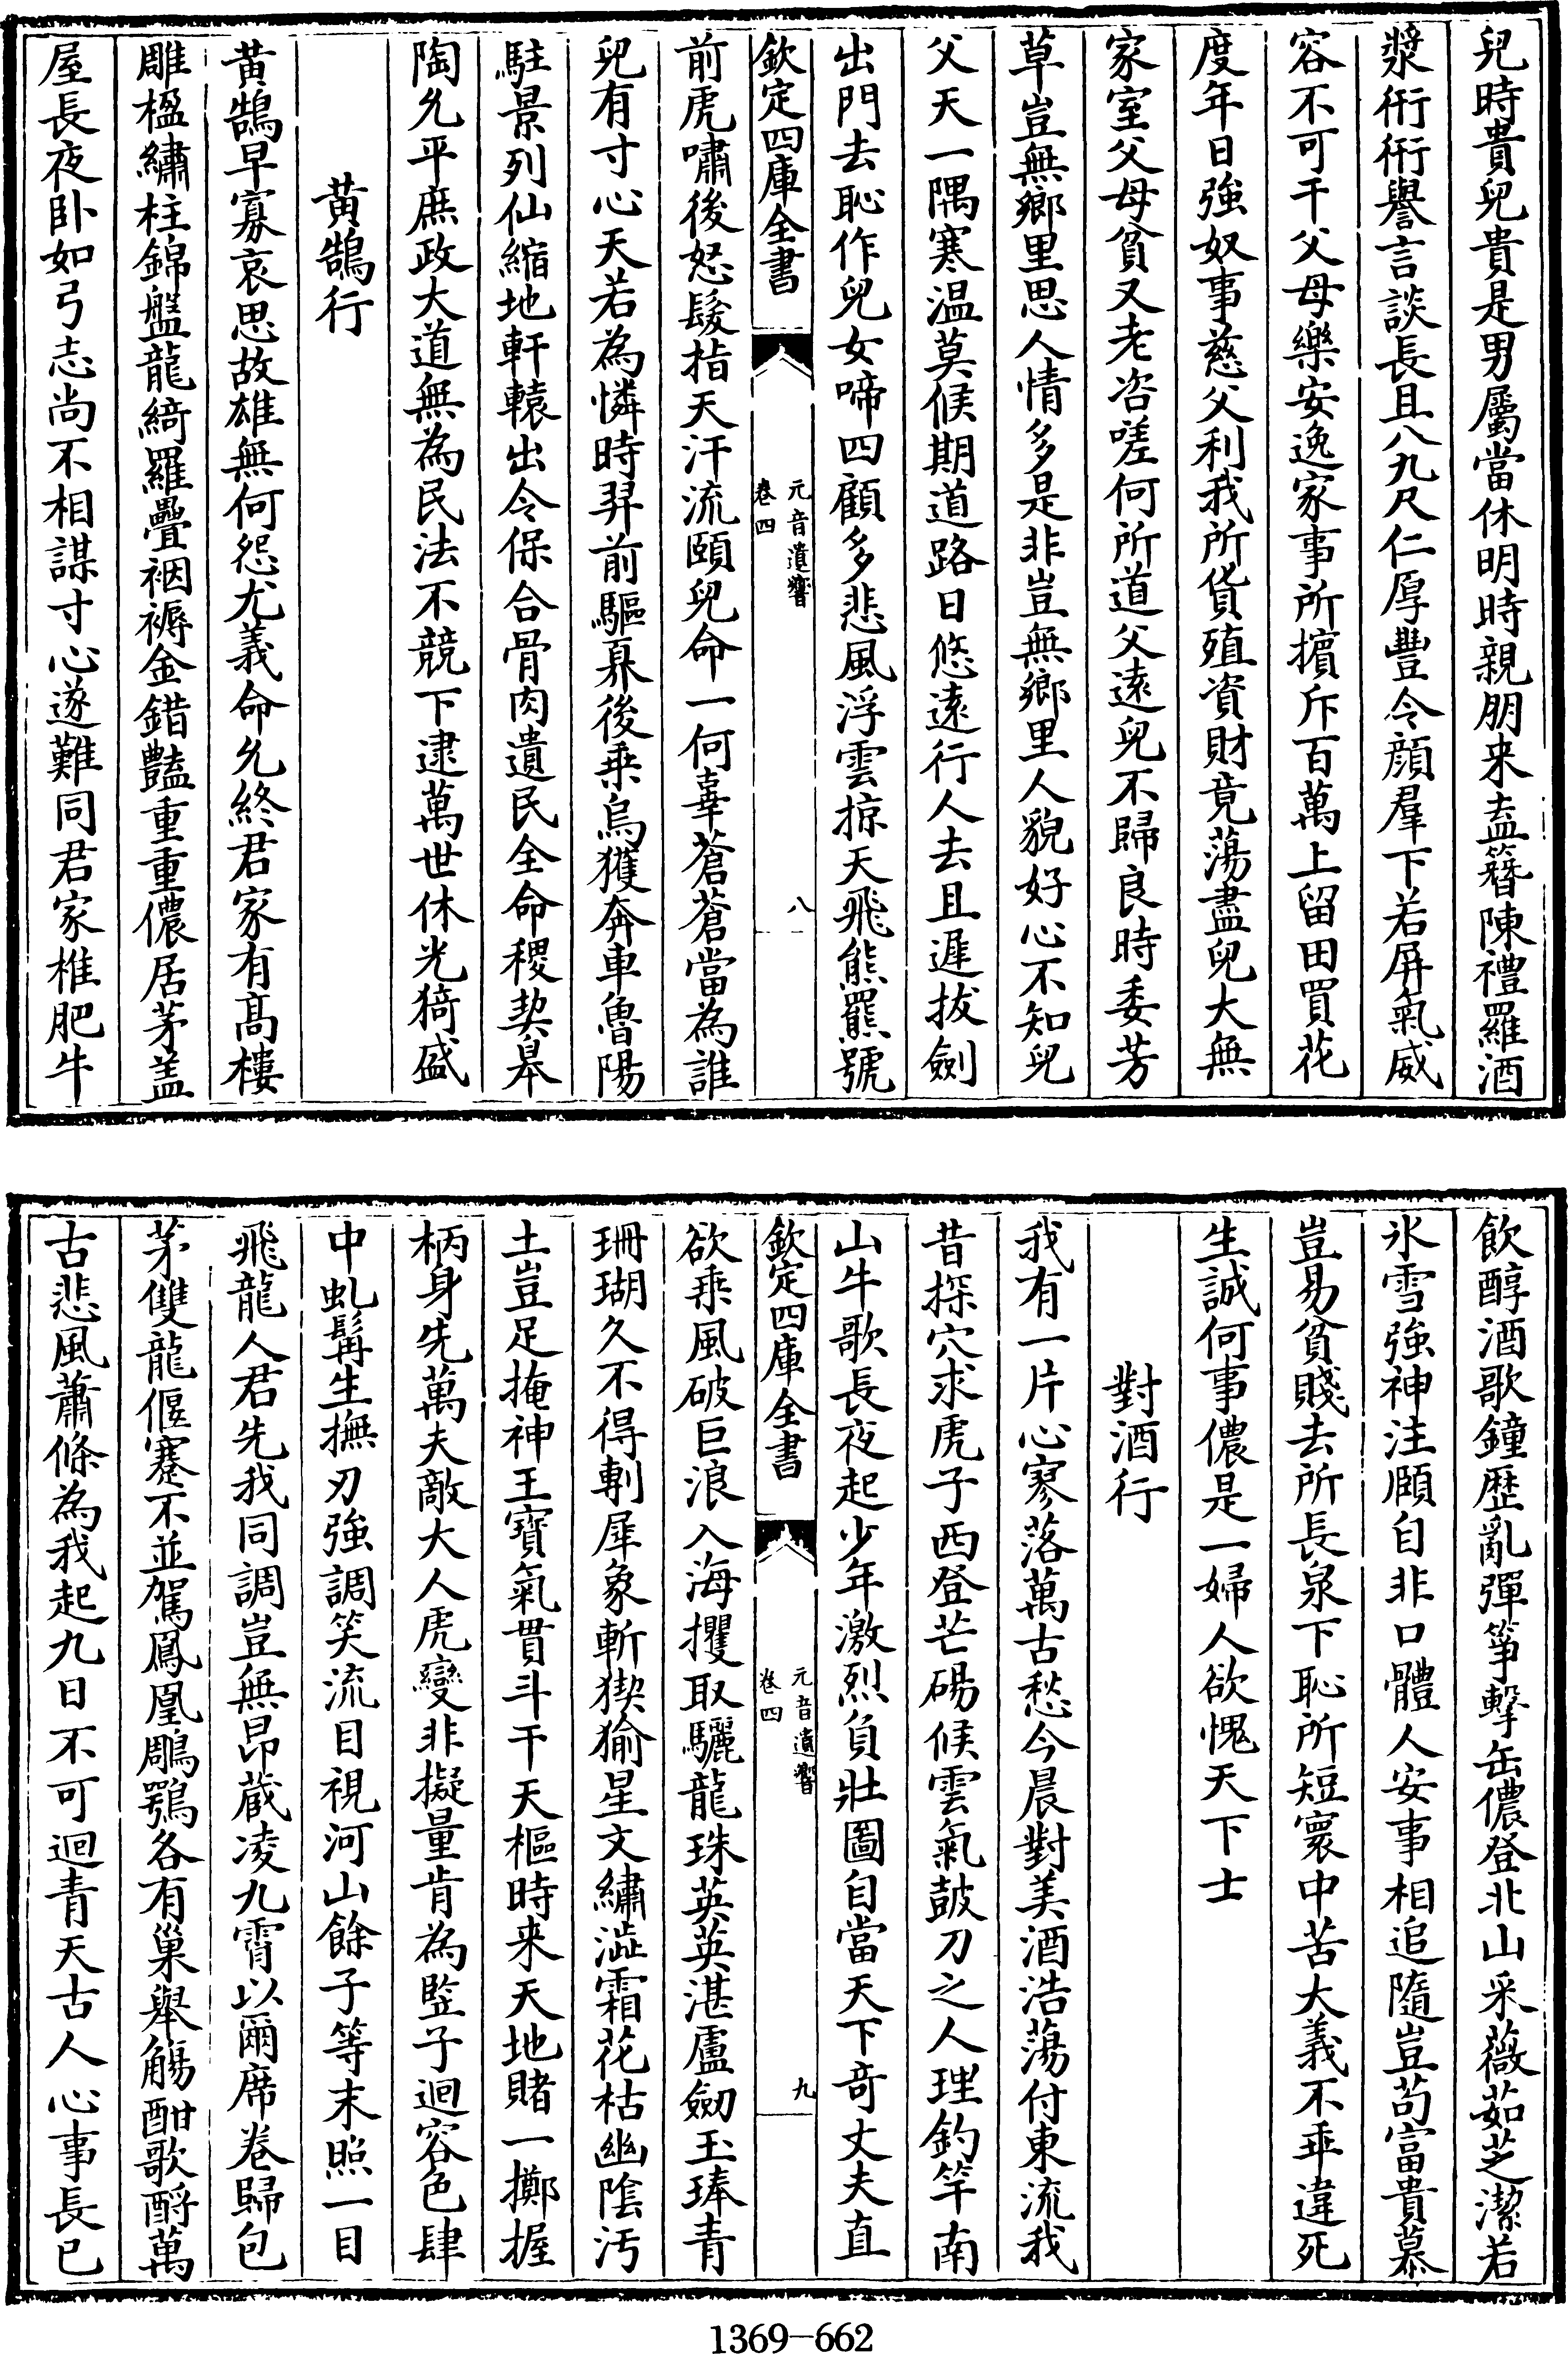 兒時貴兒貴是男屬當休明時親朋来盍簪陳禮羅酒
漿衎衎譽言談長且八九尺仁厚豐令顔羣下若屏氣威
容不可干父母樂安逸家事所擯斥百萬上留田買花
度年日強奴事慈父利我所貨殖資財竟蕩盡兒大無
家室父母貧又老咨嗟何所道父逺兒不歸良時委芳
草豈無鄉里思人情多是非豈無鄉里人貌好心不知兒
父天一隅寒温莫候期道路日悠逺行人去且遲拔劍
出門去恥作兒女啼四顧多悲風浮雲掠天飛熊羆號
欽定四庫全書
元音遺響
卷四
八
前虎嘯後怒髮指天汗流頤兒命一何辜蒼蒼當為誰
兒有寸心天若為憐時羿前驅奡後乗烏獲奔車魯陽
駐景列仙縮地軒轅出令保合骨肉遺民全命稷契皋
陶允平庶政大道無為民法不競下逮萬世休光猗盛
黄鵠行
黄鵠早寡哀思故雄無何怨尤義命允終君家有髙樓
雕楹繡柱錦盤龍綺羅疊裀褥金錯豔重重儂居茅盖
屋長夜卧如弓志尚不相謀寸心遂難同君家椎肥牛
飲醇酒歌鐘歴亂彈箏擊缶儂登北山采薇茹芝潔若
氷雪強神注頤自非口體人安事相追隨豈茍富貴慕
豈易貧賤去所長泉下恥所短寰中苦大義不乖違死
生誠何事儂是一婦人欲愧天下士
對酒行
我有一片心寥落萬古愁今晨對美酒浩蕩付東流我
昔探穴求虎子西登芒碭候雲氣鼓刀之人理釣竿南
山牛歌長夜起少年激烈負壯圖自當天下奇丈夫直
欽定四庫全書
元音遺響
卷四
九
欲乗風破巨浪入海攫取驪龍珠英英湛盧劒玉琫青
珊瑚久不得剸犀象斬猰㺄星文繡澁霜花枯幽隂汚
土豈足掩神王寳氣貫斗干天樞時来天地賭一擲握
柄身先萬夫敵大人虎變非擬量肯為竪子迴容色肆
中虬髯生撫刃強調笑流目視河山餘子等末照一目
飛龍人君先我同調豈無昂藏凌九霄以爾席卷歸包
茅雙龍偃蹇不並駕鳳凰鵰鶚各有巢舉觴酣歌酹萬
古悲風蕭條為我起九日不可迴青天古人心事長已
1369-662